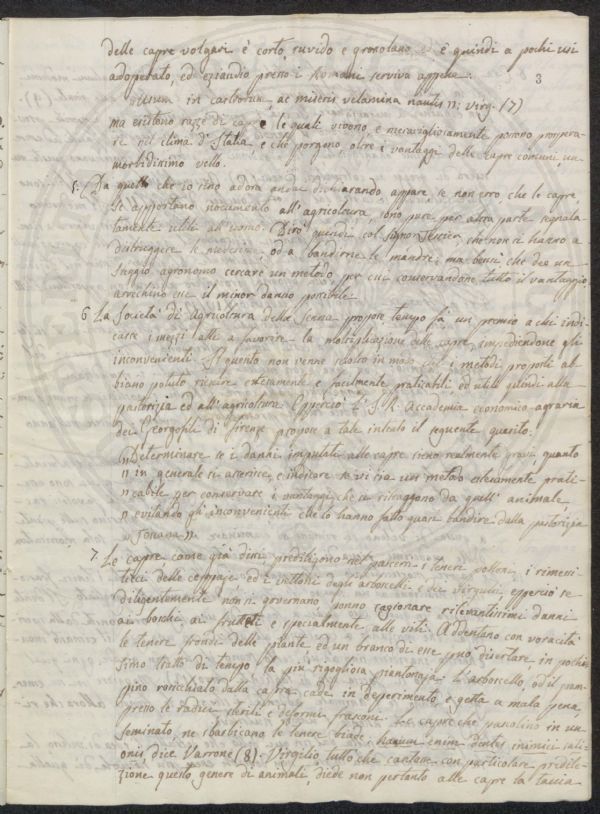 3
delle capre volgari è corto, ruvido e grossolano, ed è quindi a pochi usi
adoperato, ed eziandio presso i Romani serviva appena
Usum in castrorum, ac miseris velamina nautis n: virg. (7)
ma esistono razze di capre le quali vivono e meravigliosamente possono prospera-
re nel clima d'Italia, e che porgono, oltre i vantaggi delle capre comuni, un
morbidissimo vello.
5. Da quello che io sino adora andai dichiarando appare, se non erro, che le capre,
se apportano nocumento all'agricoltura, sono pure per altra parte segnala-
tamente utili all'uomo. Dirò quindi col signor Tessier che non si hanno a
distruggere le medesime, od a bandirne le mandre; ma bensì che dee un
saggio agronomo cercare un metodo per cui conservandone tutto il vantaggio
arrechino esse il minor danno possibile.
6 La Società di Agricoltura della Senna propose tempo fà un premio a chi indi-
casse i mezzi atti a favorire la moltiplicazione delle capre impedendone gli
inconvenienti. Il quesito non venne sciolto in modo che i metodi proposti ab-
biano potuto riescire estesamente e facilmente praticabili ed utili quindi alla
pastorizia ed all'agricoltura. Epperciò l'I. R. Accademia economico-agraria
dei Georgofili di Firenze propose a tale intento il seguente quesito:
"Determinare se i danni imputati alle capre sieno realmente gravi quanto
" in generale si asserisce, e indicare se vi sia un metodo estesamente prati-
" cabile per conservare i vantaggi che si ritraggono da quest'animale,
" evitando gl'inconvenienti che lo hanno fatto quasi bandire dalla pastorizia
" Toscana."
7 Le capre come già dissi prediligono nel pascersi i teneri polloni, i rimessi-
ticci delle ceppaje ed i vettoni degli arboscelli e dei virgulti, epperciò se
diligentemente non si governano ponno cagionare rilevantissimi danni
ai boschi ai frutteti e specialmente alle viti. Addentano con voracità
le tenere frondi delle piante ed un branco di esse può disertare in pochis-
simo tratto di tempo la più rigogliosa piantonaja. L'arboscello, od il pam-
pino rosicchiato dalla capra cade in deperimento, e getta a mala pena
presso le radici sterili e deformi frasconi. Le capre che pascolino in un
seminato, ne sbarbicano le tenere biade; harum enim dentes inimici sati-
onis dice Varrone (8). Virgilio tutto che cantasse con particolare predile-
zione questo genere di animali, diede non pertanto alle capre la taccia